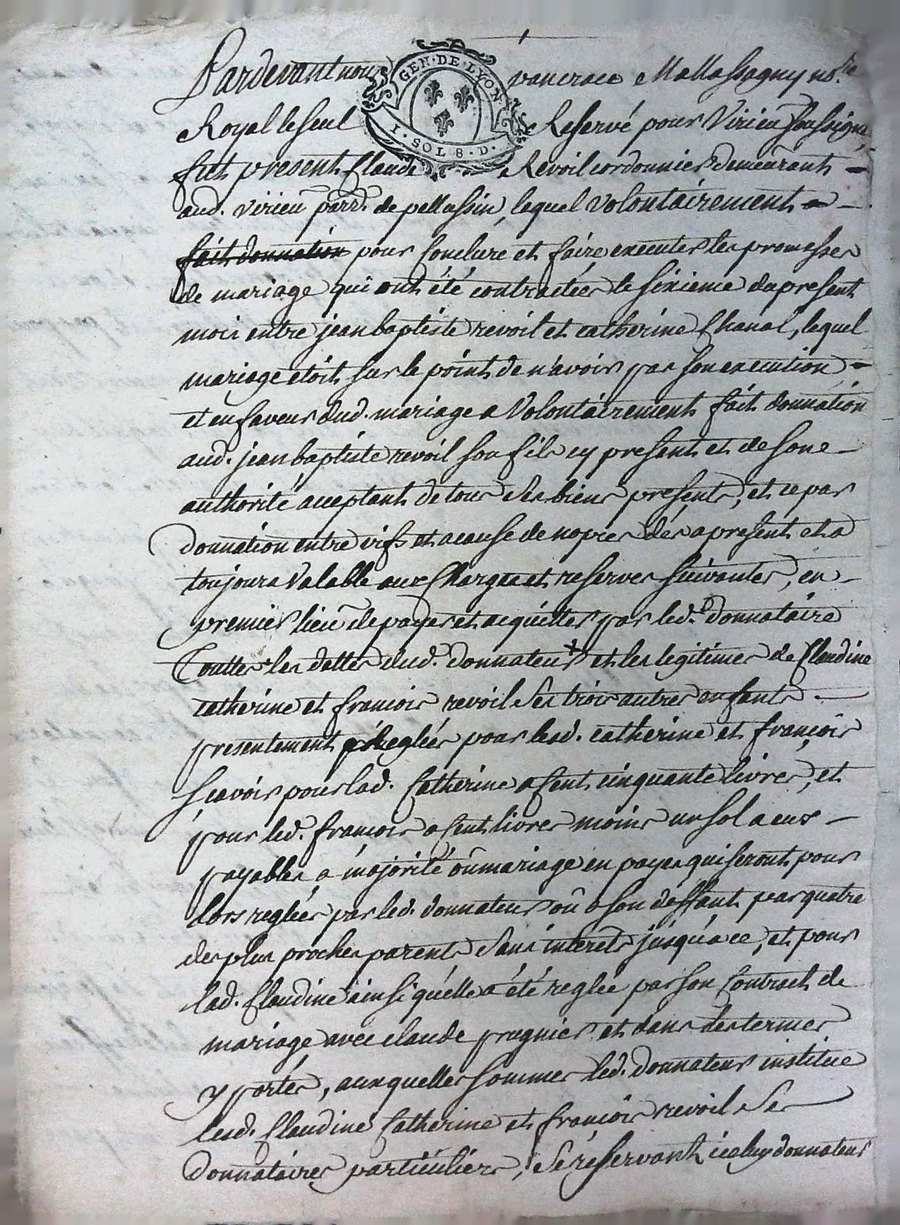 Pardevant nous pancrace Mallassagny no.re
GEN · DE · LYON
I · SOL 8 · D ·
Royal le seul Reservé pour Virieu soussigné
fut present Claude Revoil cordonnier demeurant
aud. Virieu parr. de pellussin, lequel volontairement
fait donnation pour conclure et faire executer les promesses
de mariage qui ont été contractées le sixieme du present
mois entre jean baptiste revoil et catherine Chanal, lequel
mariage étoit sur le point de n'avoir pas son execution
et en faveur dud. mariage a volontairement fait donnation
aud. jean baptiste revoil son fils cy present et de son
authorité acceptant de tous ses biens presents, et ce par
donnation entre vifs et a cause de nopces dès a present et a
toujours valable aux charges et reserves suivantes, en
premier lieu de payer et acquitter par led. donnataire
Touttes les dettes dud. donnateur et les legitimes de Claudine
catherine et françois revoil ses trois autres enfants
presentement reglées pour lesd. catherine et françois
scavoir pour lad. Catherine a cent cinquante livres, et
pour led. françois a cent livres moins un sol a eux
payables a majorité ou mariage en payes qui seront pour
lors reglées par led. donnateur ou a son deffaut par quatre
des plus proches parents sans interets jusqu'a ce, et pour
lad. Claudine ainsi qu'elle a été reglée par son Contract de
mariage avec claude pragnier et dans les termes
y portés, auxquelles sommes led. donnateur institue
lesd. Claudine Catherine et françois revoil ses
donnataires particuliers, se réservant icelluy donnateur